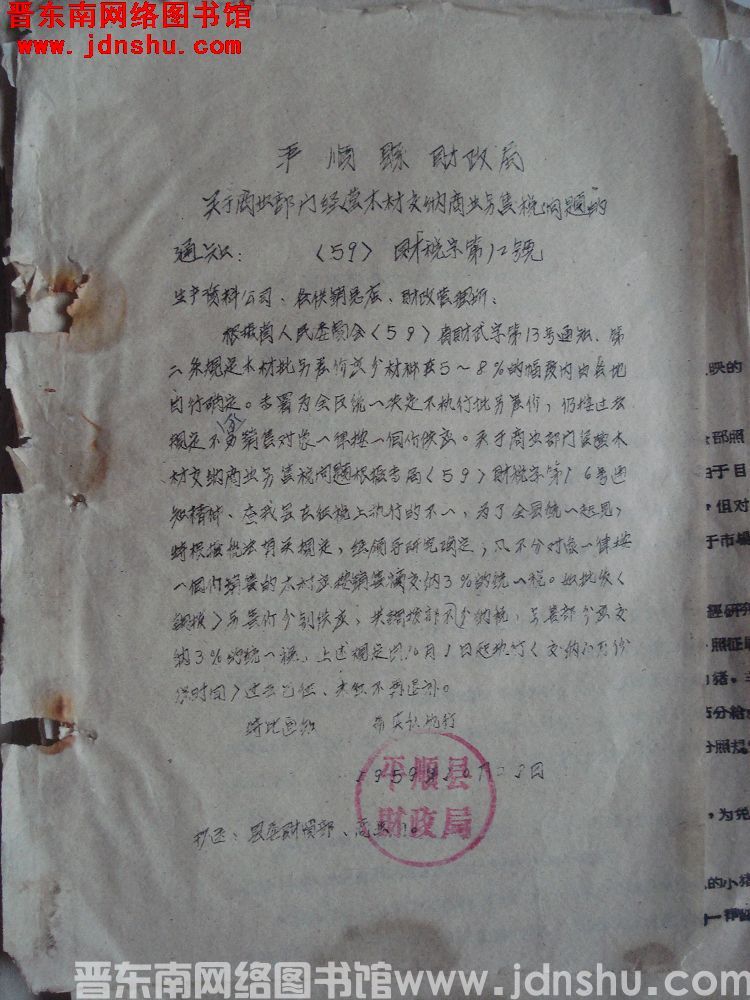 晋东南网络图书馆
www.jdnshu.com
平顺县财政局
关于商业部门经营木材交纳商业另售税问题的
通知: (59) 财税字第12号
生产资料公司、各供销总店、财政管理所:
根据省人民委员会(59)省财武字第13号通知、第
二条规定木材批另差价őa分材种在5~8%的幅度内由各地
自行确定。专署为全区统一决定不执行批另差价,仍按过去
规定不分销售对象一律按一个价供应。关于商业部门经营木
材交纳商业另售税问题根据专局(59)财税字第16号通
知精神、在我县在征税上执行的不一,为了全县统一起见,
特根据批发有关规定,经领导研究确定;凡不分对象一律按
一个价销售的木材应按销售额交纳3%的统一税。如批发(
调拨)另售价分别供应,其调拨部分不纳税,另售部分应交
纳3%的统一税,上述规定由10月1日起执行(交纳 月份
税时间)过去已征、未征不再退补。
特此通知 希依认执行
1959年10月28日
平顺县
财政局
抄送:县委财贸部、商业局。
映的
部照
由于目
,但对
于市场
经研究
照征
猪。
百分给
分照规
,为免
的小猪
一种
晋东南网络图书馆www.jdnshu.com